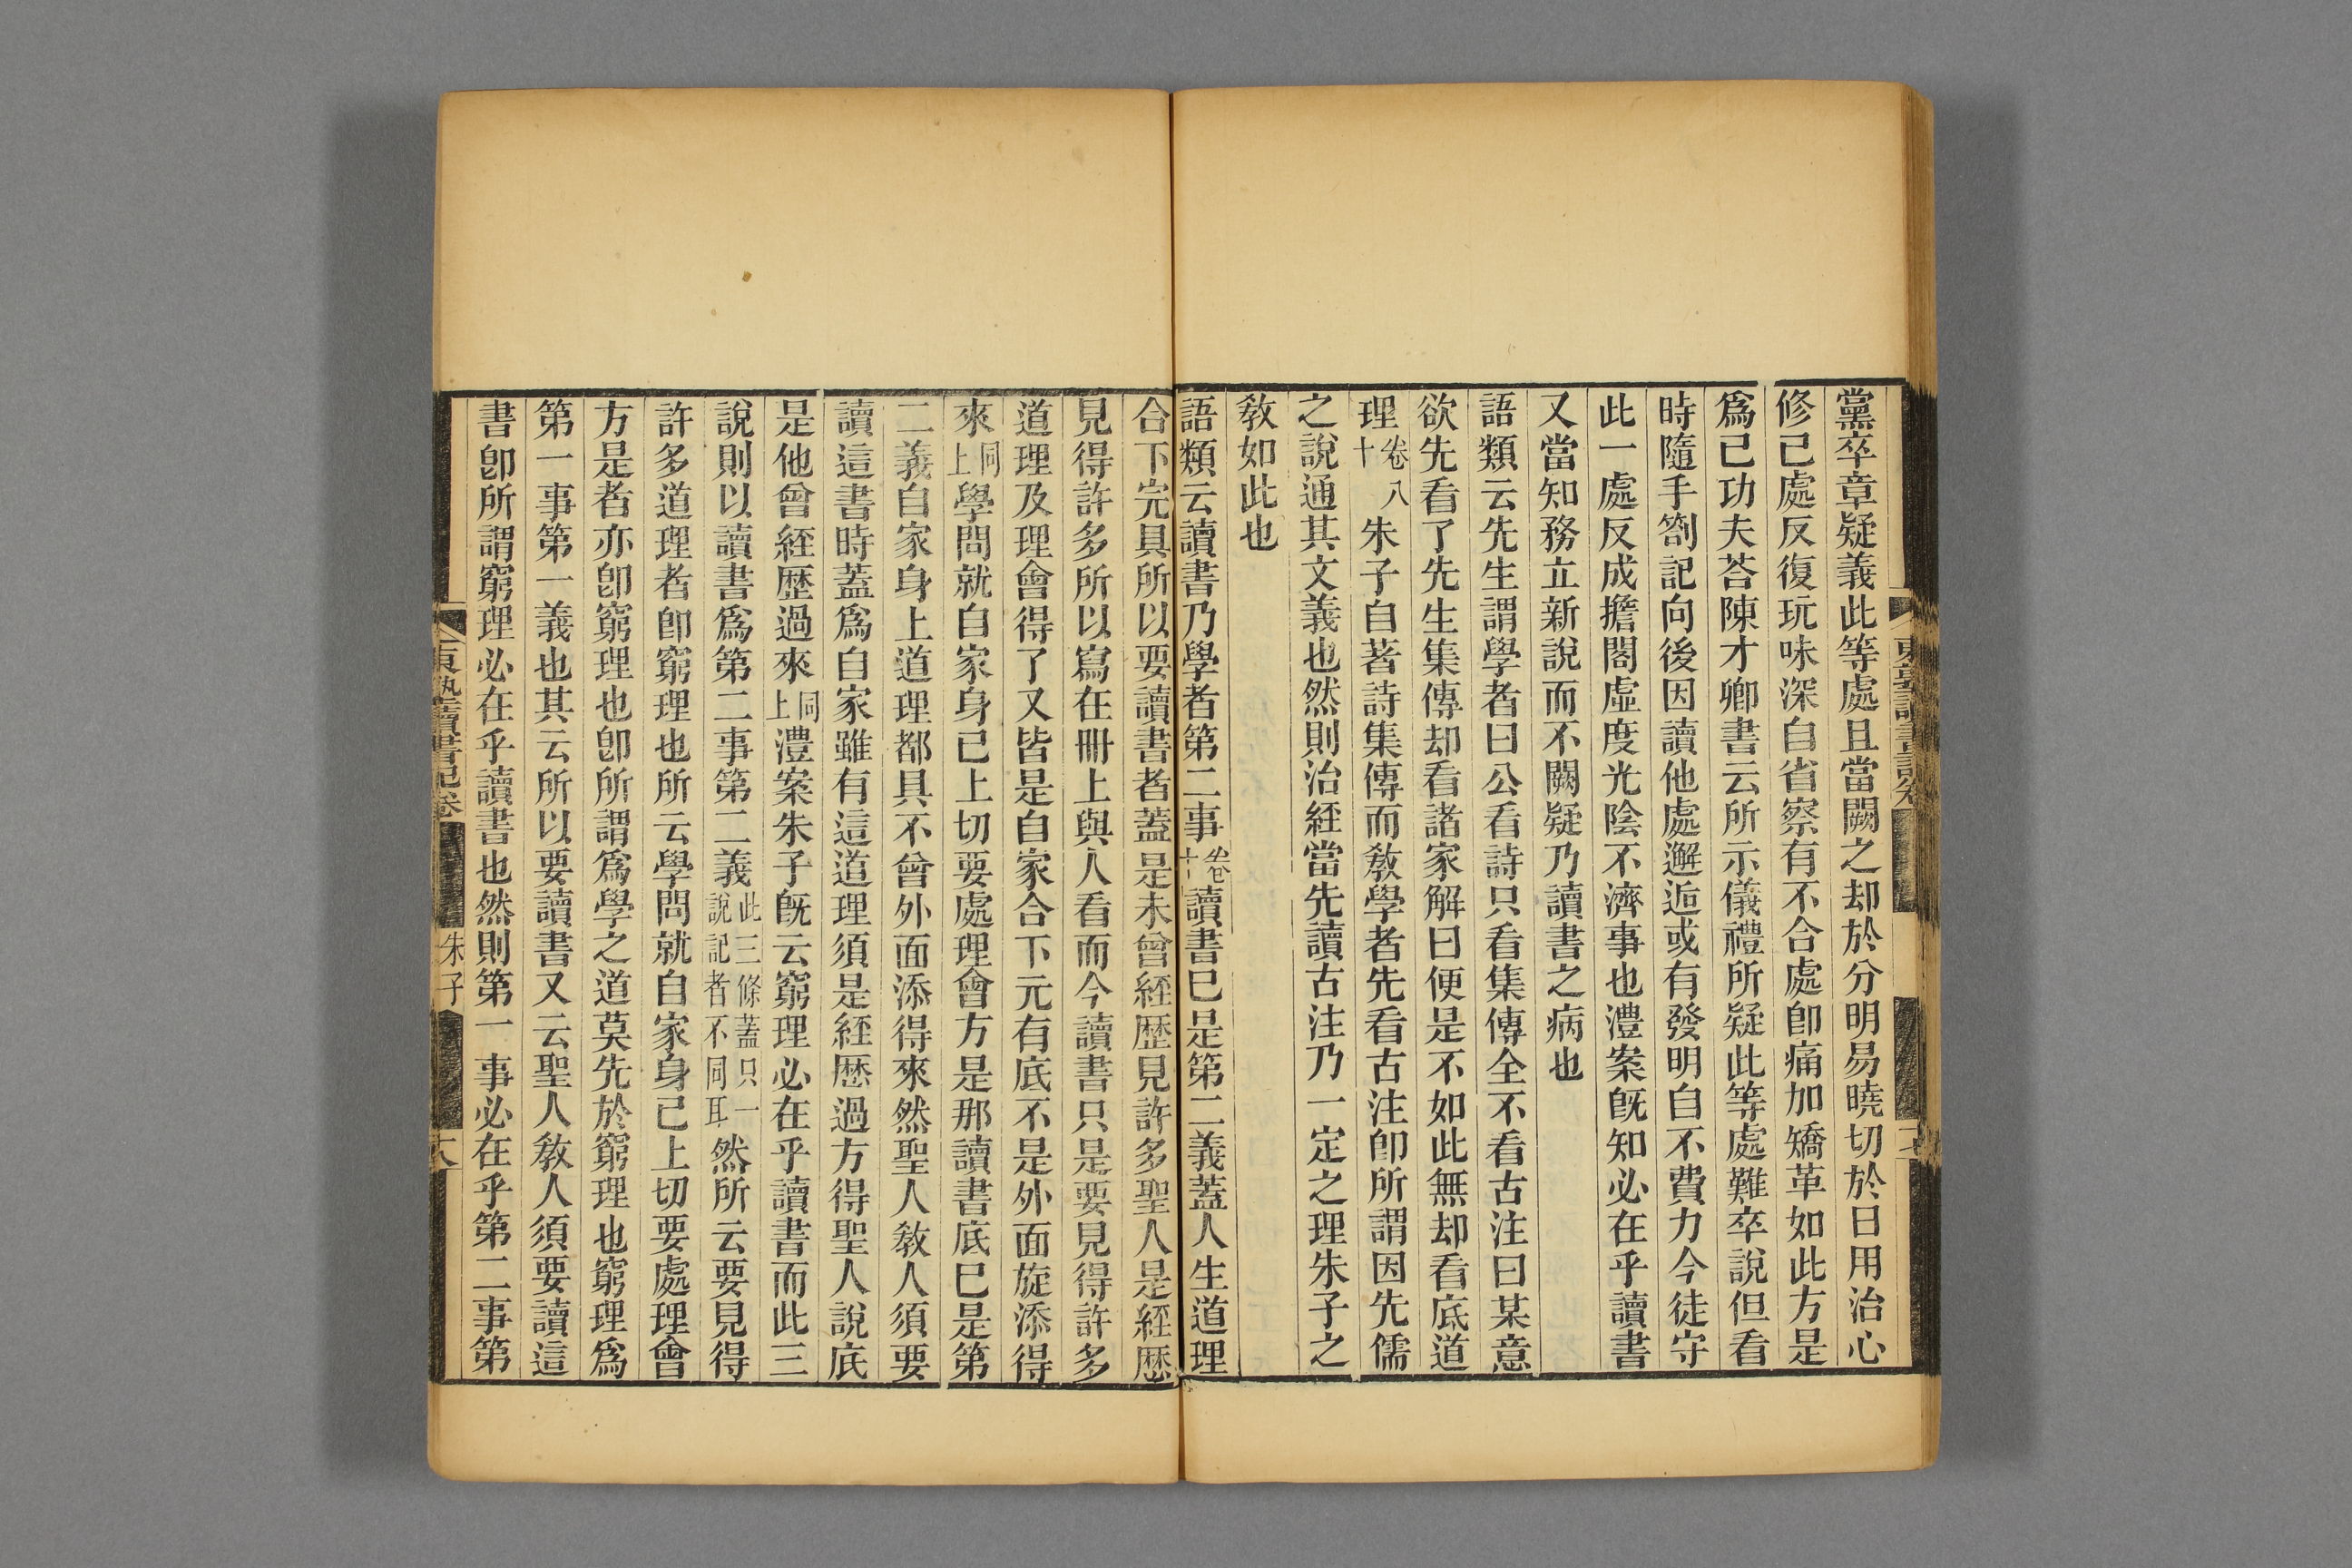 黨卒章疑義此等處且當闕之却於分明易曉切於日用治心
修己處反復玩味深自省察有不合處卽痛加矯革如此方是
爲己功夫荅陳才卿書云所示儀禮所疑此等處難卒說但看
時隨手劄記向後因讀他處邂逅或有發明自不費力今徒守
此一處反成擔閣虛度光陰不濟事也澧案旣知必在乎讀書
又當知務立新說而不闕疑乃讀書之病也
語類云先生謂學者曰公看詩只看集傳全不看古注曰某意
欲先看了先生集傳却看諸家解曰便是不如此無却看底道
理卷八十朱子自著詩集傳而敎學者先看古注卽所謂因先儒
之說通其文義也然則治經當先讀古注乃一定之理朱子之
敎如此也
語類云讀書乃學者第二事卷十讀書已是第二義蓋人生道理
合下完具所以要讀書者蓋是未曾經歷見許多聖人是經歷
見得許多所以寫在冊上與人看而今讀書只是要見得許多
道理及理會得了又皆是自家合下元有底不是外面旋添得
來同上學問就自家身己上切要處理會方是那讀書底已是第
二義自家身上道理都具不曾外面添得來然聖人敎人須要
讀這書時蓋爲自家雖有這道理須是經歷過方得聖人說底
是他曾經歷過來同上澧案朱子旣云窮理必在乎讀書而此三
說則以讀書爲第二事第二義此三條蓋只一說記者不同耳然所云要見得
許多道理者卽窮理也所云學問就自家身己上切要處理會
方是者亦卽窮理也卽所謂爲學之道莫先於窮理也窮理爲
第一事第一義也其云所以要讀書又云聖人敎人須要讀這
書卽所謂窮理必在乎讀書也然則第一事必在乎第二事第
東塾讀書記卷
朱子
十八